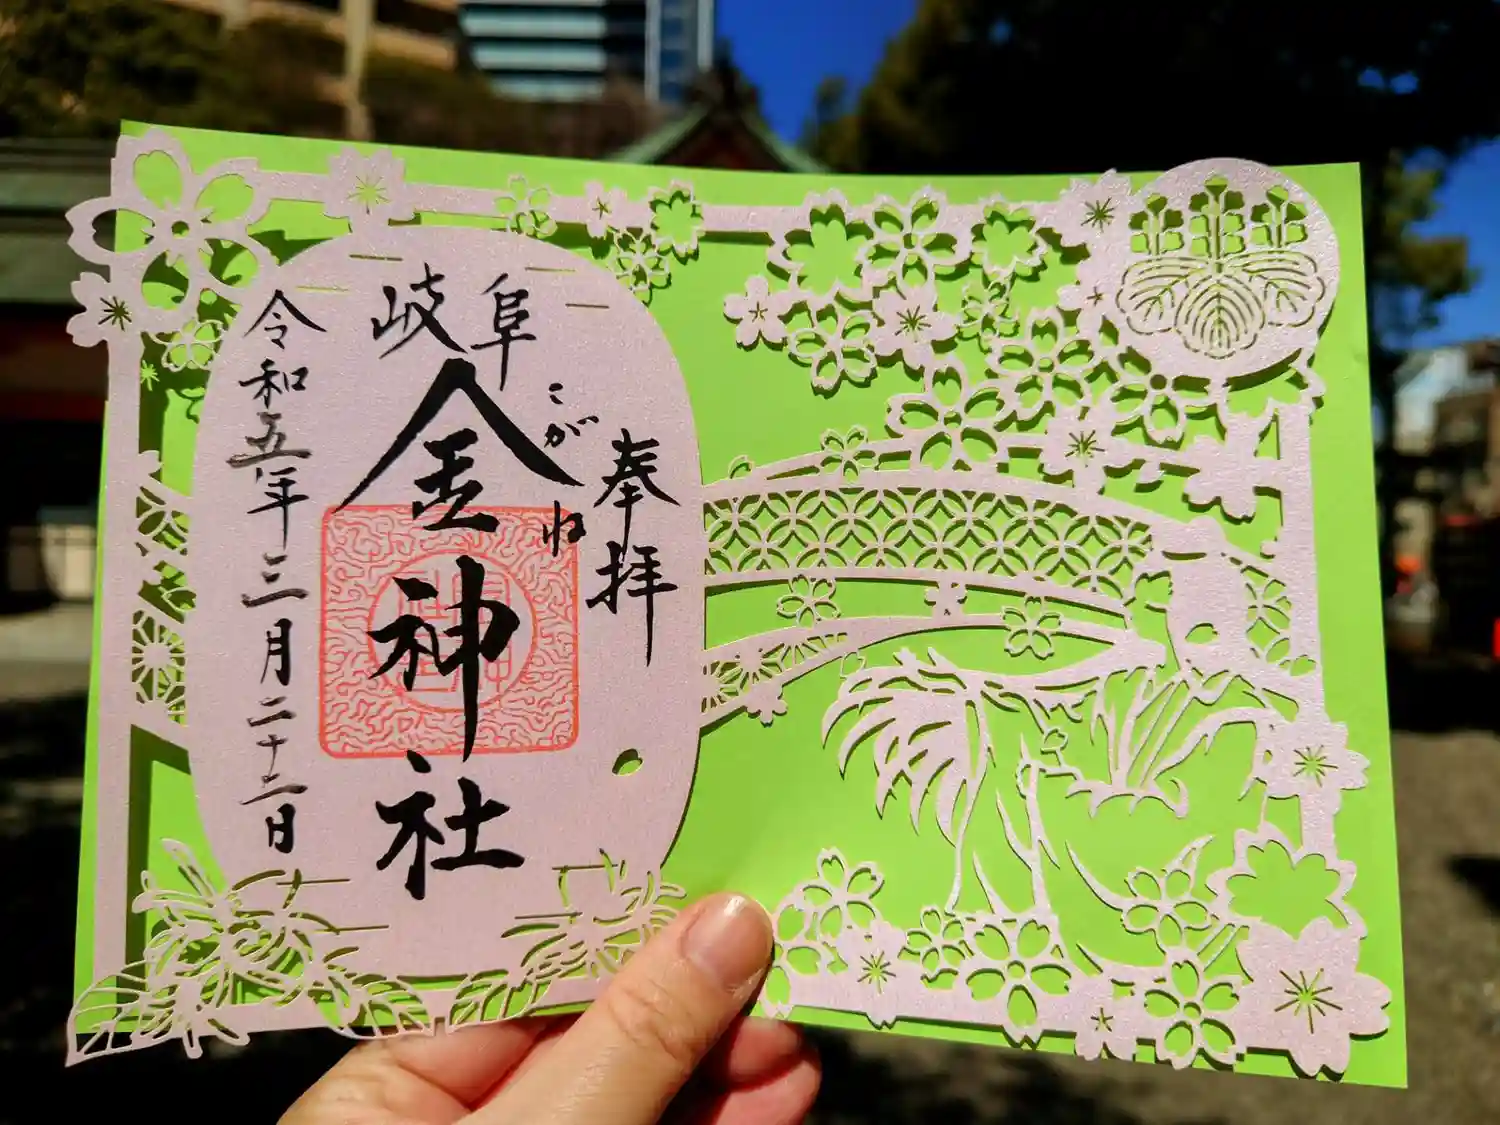 奉拝
岐阜
こがね
金神社
令和五年三月二十三日